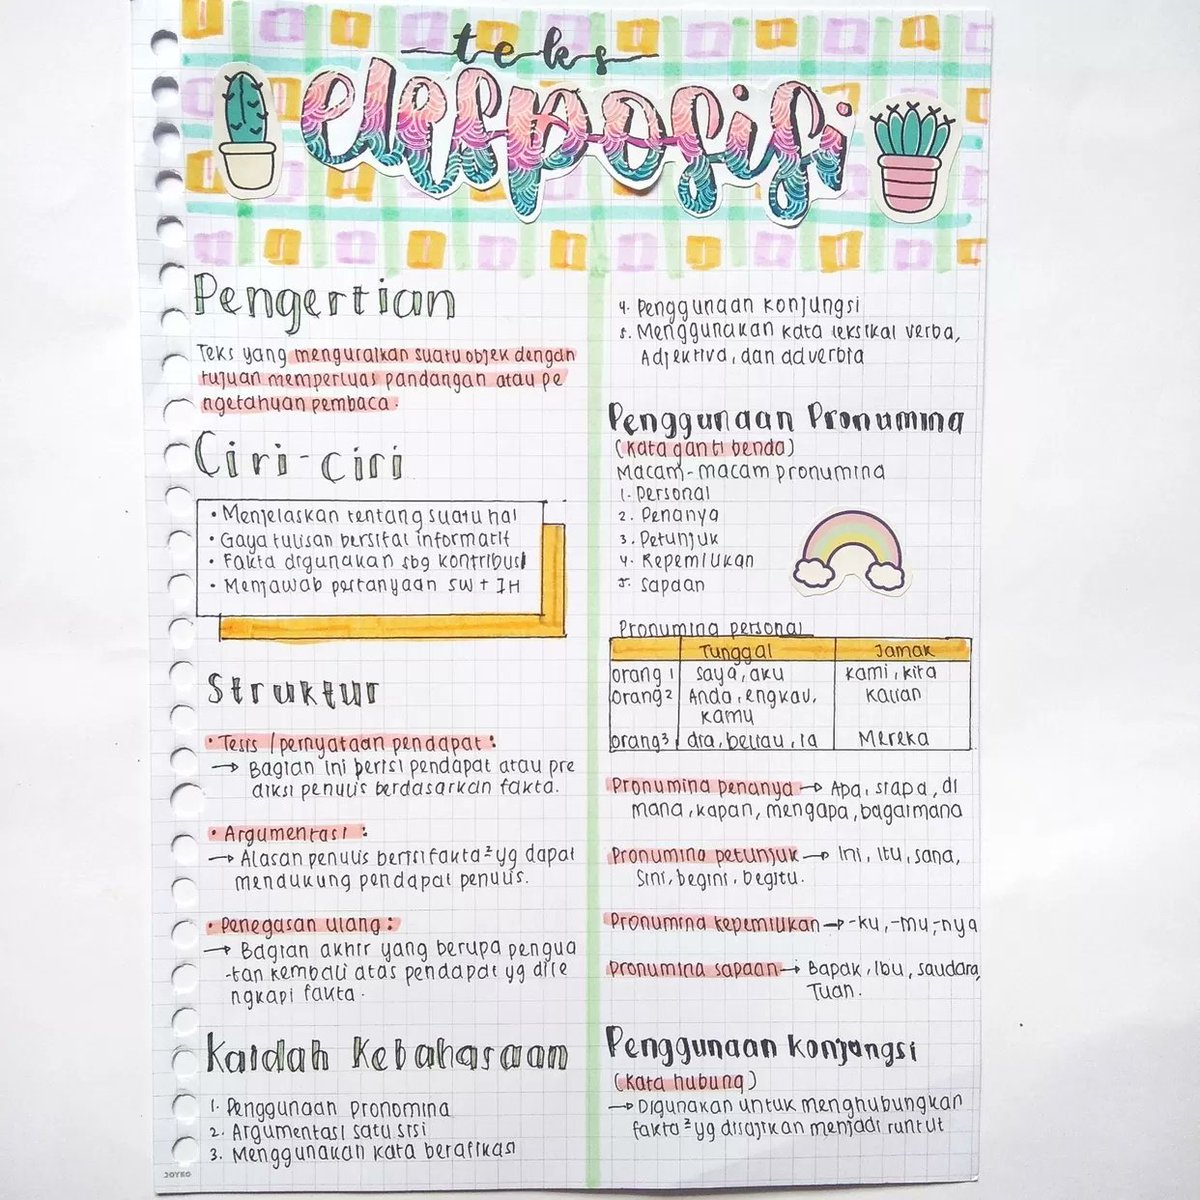 teks
eksposisi
Pengertian
Teks yang menguraikan suatu objek dengan
tujuan memperluas pandangan atau pe
ngetahuan pembaca.
Ciri-Ciri
• Menjelaskan tentang suatu hal
• Gaya tulisan bersifat informatif
• Fakta digunakan sbg kontribusi
• Menjawab pertanyaan 5W + 1H
Struktur
• Tesis / pernyataan pendapat :
→ Bagian ini berisi pendapat atau pre
diksi penulis berdasarkan fakta.
• Argumentasi :
→ Alasan penulis berisi fakta² yg dapat
mendukung pendapat penulis.
• Penegasan ulang :
→ Bagian akhir yang berupa pengua
-tan kembali atas pendapat yg dile
ngkapi fakta.
Kaidah Kebahasaan
1. Penggunaan pronomina
2. Argumentasi satu sisi
3. Menggunakan kata berafiksasi
4. Penggunaan konjungsi
5. Menggunakan kata leksikal verba,
Adjektiva, dan adverbia
Penggunaan Pronumina
(kata ganti benda)
Macam-macam pronumina
1. Personal
2. Penanya
3. Petunjuk
4. Kepemilikan
5. Sapaan
Pronumina personal
Tunggal Jamak
orang 1 saya, aku kami, kita
orang 2 Anda, engkau, kalian
kamu
orang 3 dia, beliau, ia Mereka
Pronumina penanya → Apa, siapa, di
mana, kapan, mengapa, bagaimana
Pronumina petunjuk → Ini, Itu, sana,
Sini, begini, begitu.
Pronumina kepemilikan → -ku, -mu, -nya
Pronumina sapaan → Bapak, Ibu, saudara,
Tuan.
Penggunaan konjungsi
(kata hubung)
→ Digunakan untuk menghubungkan
fakta² yg disajikan menjadi runtut
JOYKO